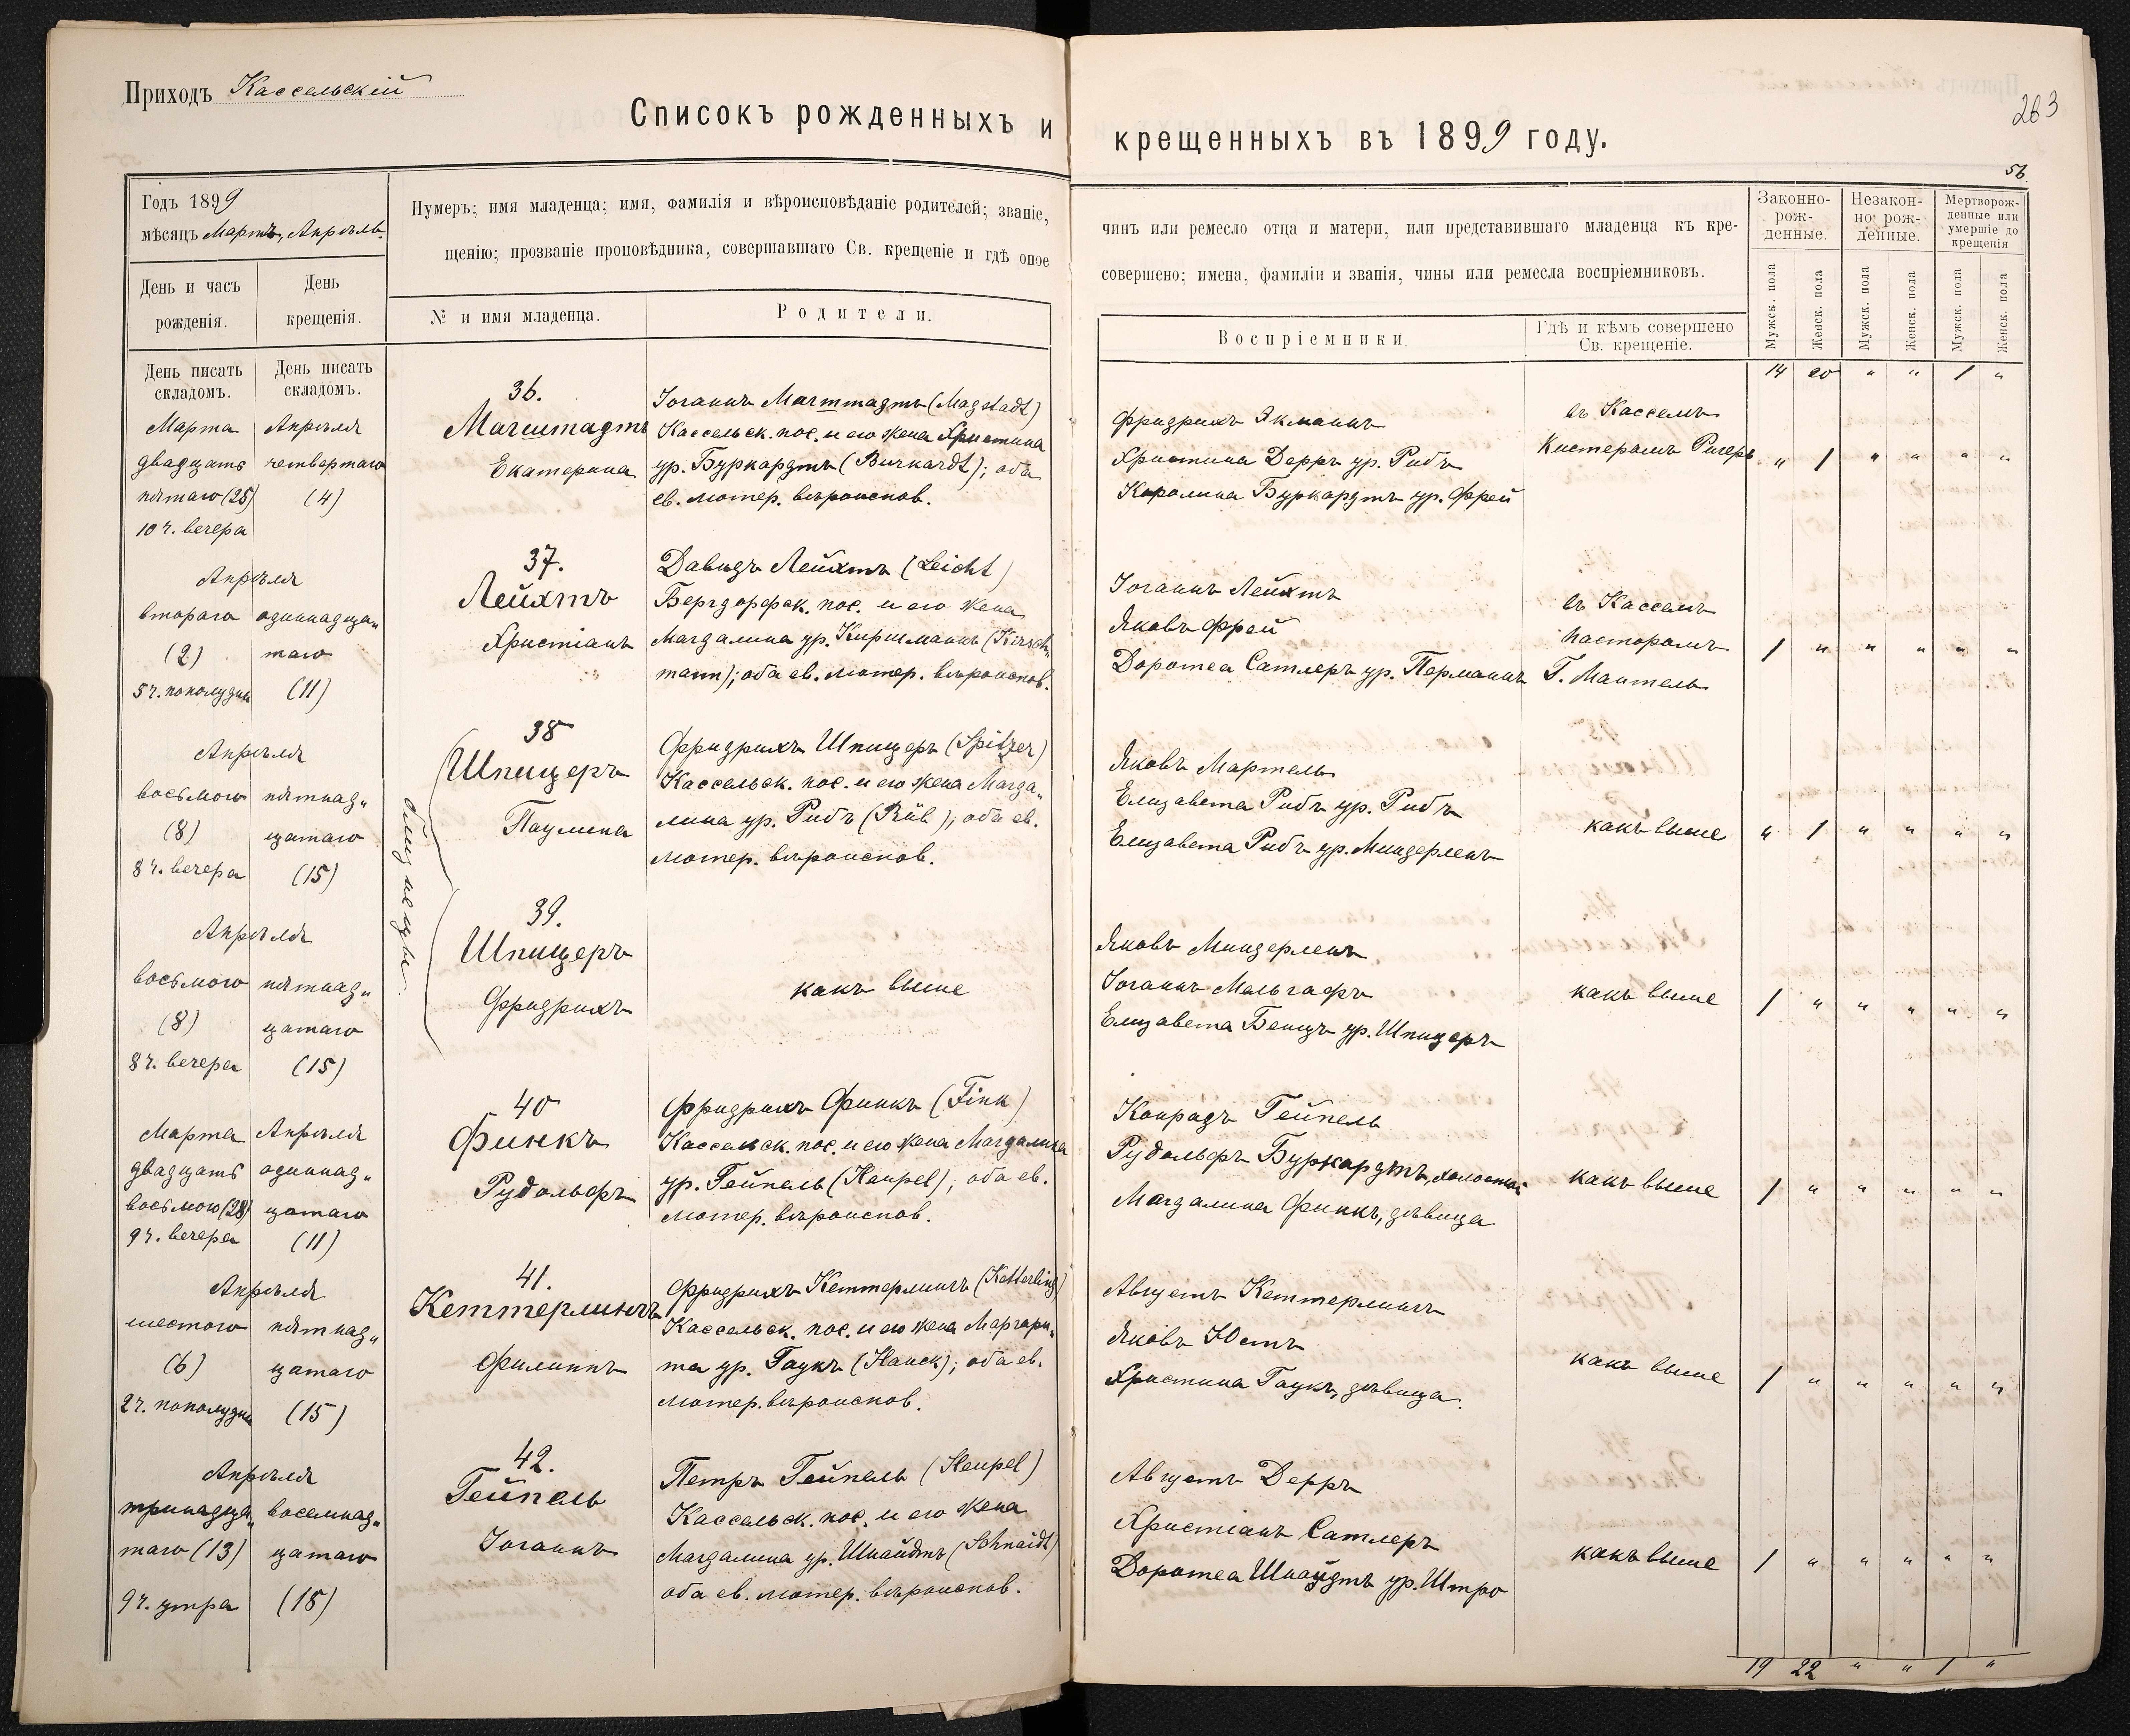 Приходъ Кассельскій
Списокъ рожденныхъ и крещенныхъ въ 1899 году.
263
56.
Годъ 1899
мѣсяцъ Мартъ, Апрѣль.
Нумеръ; имя младенца; имя, фамилія и вѣроисповѣданіе родителей; званіе, чинъ или ремесло отца и матери, или представившаго младенца къ кре-
щенію; прозваніе проповѣдника, совершавшаго Св. крещеніе и гдѣ оное совершено; имена, фамиліи и званія, чины или ремесла воспріемниковъ.
Законно-
рож-
денные.
Незакон-
но рож-
денные.
Мертворож-
денные или
умершіе до
крещенія
День и часъ
рожденія.
День
крещенія.
№ и имя младенца.
Родители.
Воспріемники.
Гдѣ и кѣмъ совершено
Св. крещеніе.
Мужск. пола
Женск. пола
Мужск. пола
Женск. пола
Мужск. пола
Женск. пола
День писать
складомъ.
День писать
складомъ.
14 20 „ „ 1 „
Марта
двадцать
пятаго (25)
10 ч. вечера
Апрѣля
четвертаго
(4)
36.
Магштадтъ
Екатерина
Іоганнъ Магштадтъ (Magstadt)
Кассельск. пос. и его жена Христина
ур. Буркардтъ (Burkardt); оба
ев. лютер. вѣроиспов.
Фридрихъ Якманнъ
Христина Дерръ ур. Рибъ
Каролина Буркардтъ ур. Фрей
въ Касселѣ
Кистеромъ Ригеръ
„ 1 „ „ „ „
Апрѣля
втораго
(2)
5 ч. пополудни
одиннадца„
таго
(11)
37.
Лейхтъ
Христіанъ
Давидъ Лейхтъ (Leicht)
Бергдорфск. пос. и его жена
Магдалина ур. Киршманнъ (Kirsch„
mann); оба ев. лютер. вѣроиспов.
Іоганнъ Лейхтъ
Яковъ Фрей
Доротеа Сатлеръ ур. Перманнъ
въ Касселѣ
Пасторомъ
Г. Мантель
1 „ „ „ „ „
Апрѣля
восьмого
(8)
8 ч. вечера
пятнад„
цатаго
(15)
близнецы.
38
Шпицеръ
Паулина
Фридрихъ Шпицеръ (Spitzer)
Кассельск. пос. и его жена Магда„
лина ур. Рибъ (Rüb); оба ев.
лютер. вѣроиспов.
Яковъ Мартель
Елизавета Рибъ ур. Рибъ
Елизавета Рибъ ур. Миндерленъ
какъ выше
„ 1 „ „ „ „
Апрѣля
восьмого
(8)
8 ч. вечера
пятнад„
цатаго
(15)
39.
Шпицеръ
Фридрихъ
какъ выше
Яковъ Миндерленъ
Іоганнъ Мальгафъ
Елизавета Бенцъ ур. Шпицеръ
какъ выше
1 „ „ „ „ „
Марта
двадцать
восьмого (28)
9 ч. вечера
Апрѣля
одиннад„
цатаго
(11)
40
Финкъ
Рудольфъ
Фридрихъ Финкъ (Fink)
Кассельск. пос. и его жена Магдалина
ур. Гейпель (Heupel); оба ев.
лютер. вѣроиспов.
Конрадъ Гейпель
Рудольфъ Буркардтъ, холостой
Магдалина Финкъ, дѣвица
какъ выше
1 „ „ „ „ „
Апрѣля
шестого
(6)
2 ч. пополудни
пятнад„
цатаго
(15)
41.
Кеттерлингъ
Филиппъ
Фридрихъ Кеттерлингъ (Ketterling)
Кассельск. пос. и его жена Маргари„
та ур. Гаукъ (Hauck); оба ев.
лютер. вѣроиспов.
Августъ Кеттерлингъ
Яковъ Юстъ
Христина Гаукъ, дѣвица.
какъ выше
1 „ „ „ „ „
Апрѣля
тринадца„
таго (13)
9 ч. утра
восемнад„
цатаго
(18)
42.
Гейпель
Іоганнъ
Петръ Гейпель (Heupel)
Кассельск. пос. и его жена
Магдалина ур. Шнайдтъ (Schnaidt)
оба ев. лютер. вѣроиспов.
Августъ Дерръ
Христіанъ Сатлеръ
Доротеа Шнайдтъ ур. Штро
какъ выше
1 „ „ „ „ „
19 22 „ „ 1 „